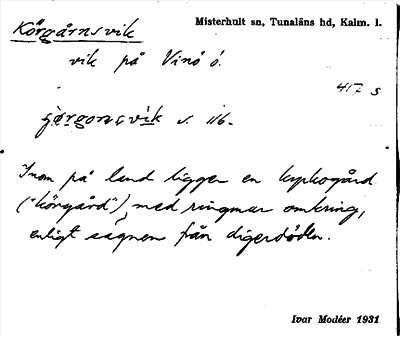 Körgårnsvik
Misterhult sn, Tunaläns hd, Kalm. l.
vik på Vinö ö.
417 s
s. 116.
Inom på land ligger en kyrkogård
("körgård"), med ringmur omkring,
enligt sägnen från digerdöden.
Ivar Modéer 1931